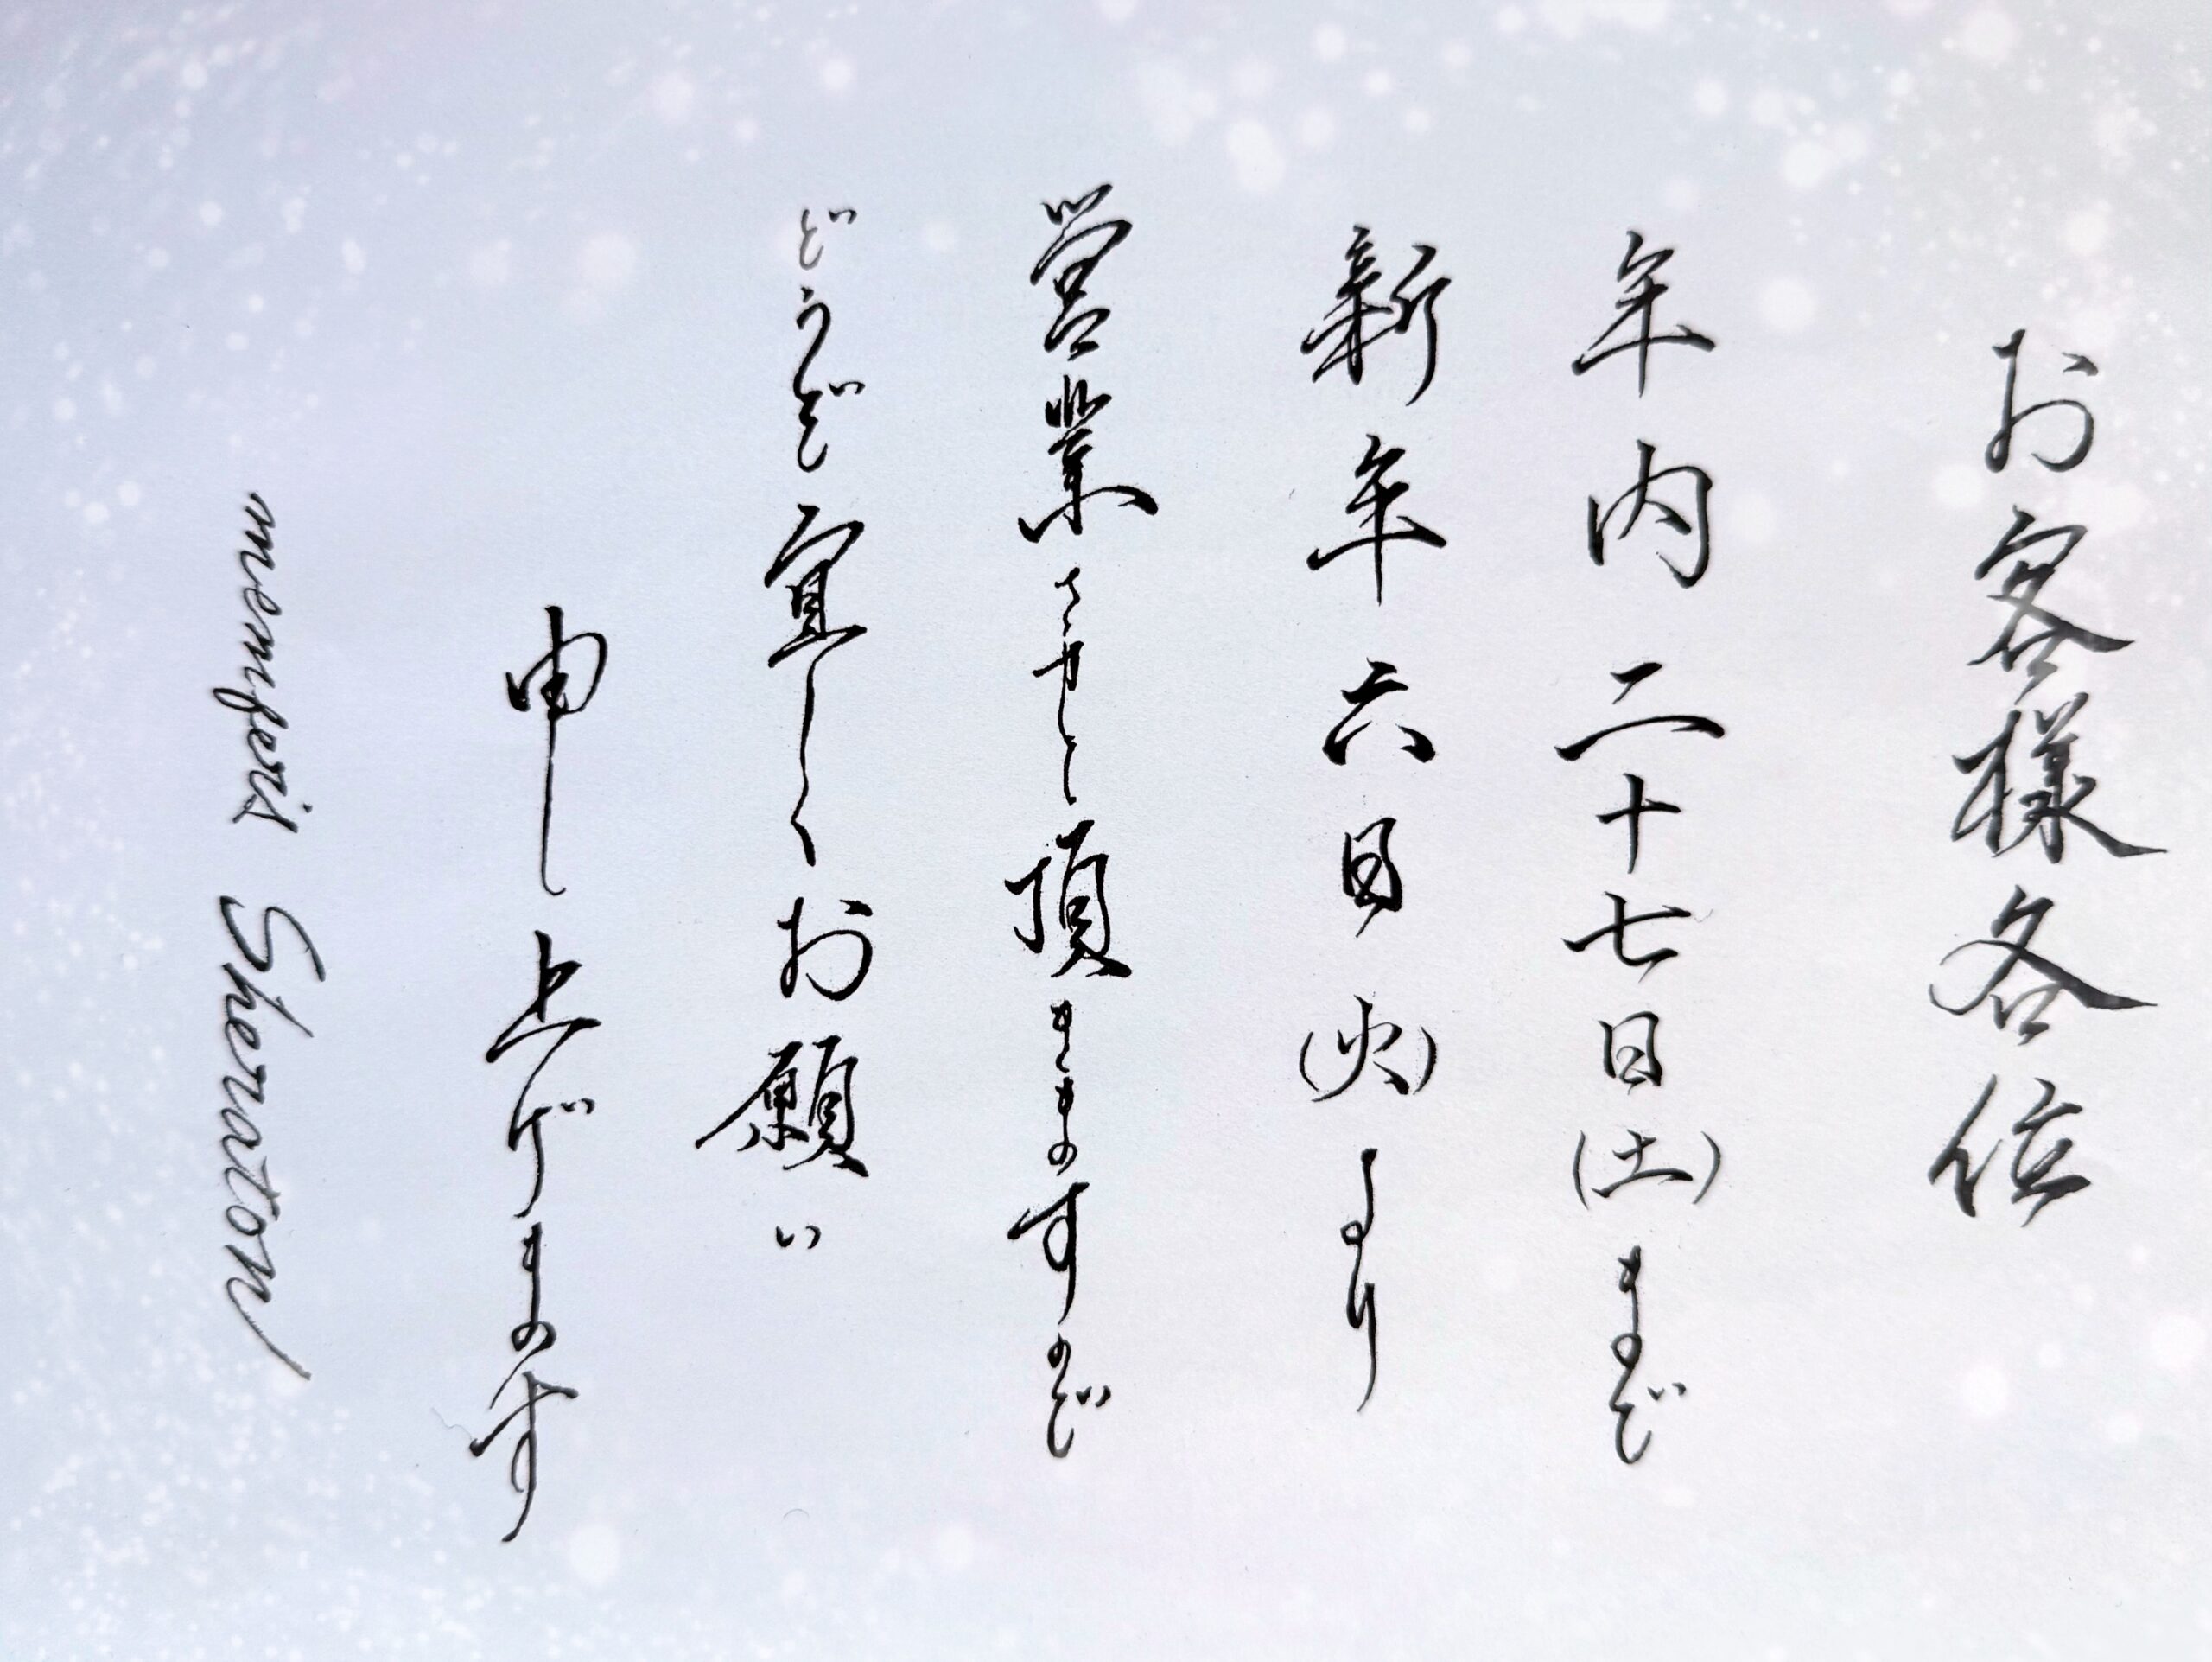 お客様各位
年内二十七日(土)まで
新年六日(火)より
営業させて頂きますので
どうぞ宜しくお願い
申し上げます
men's Sheraton